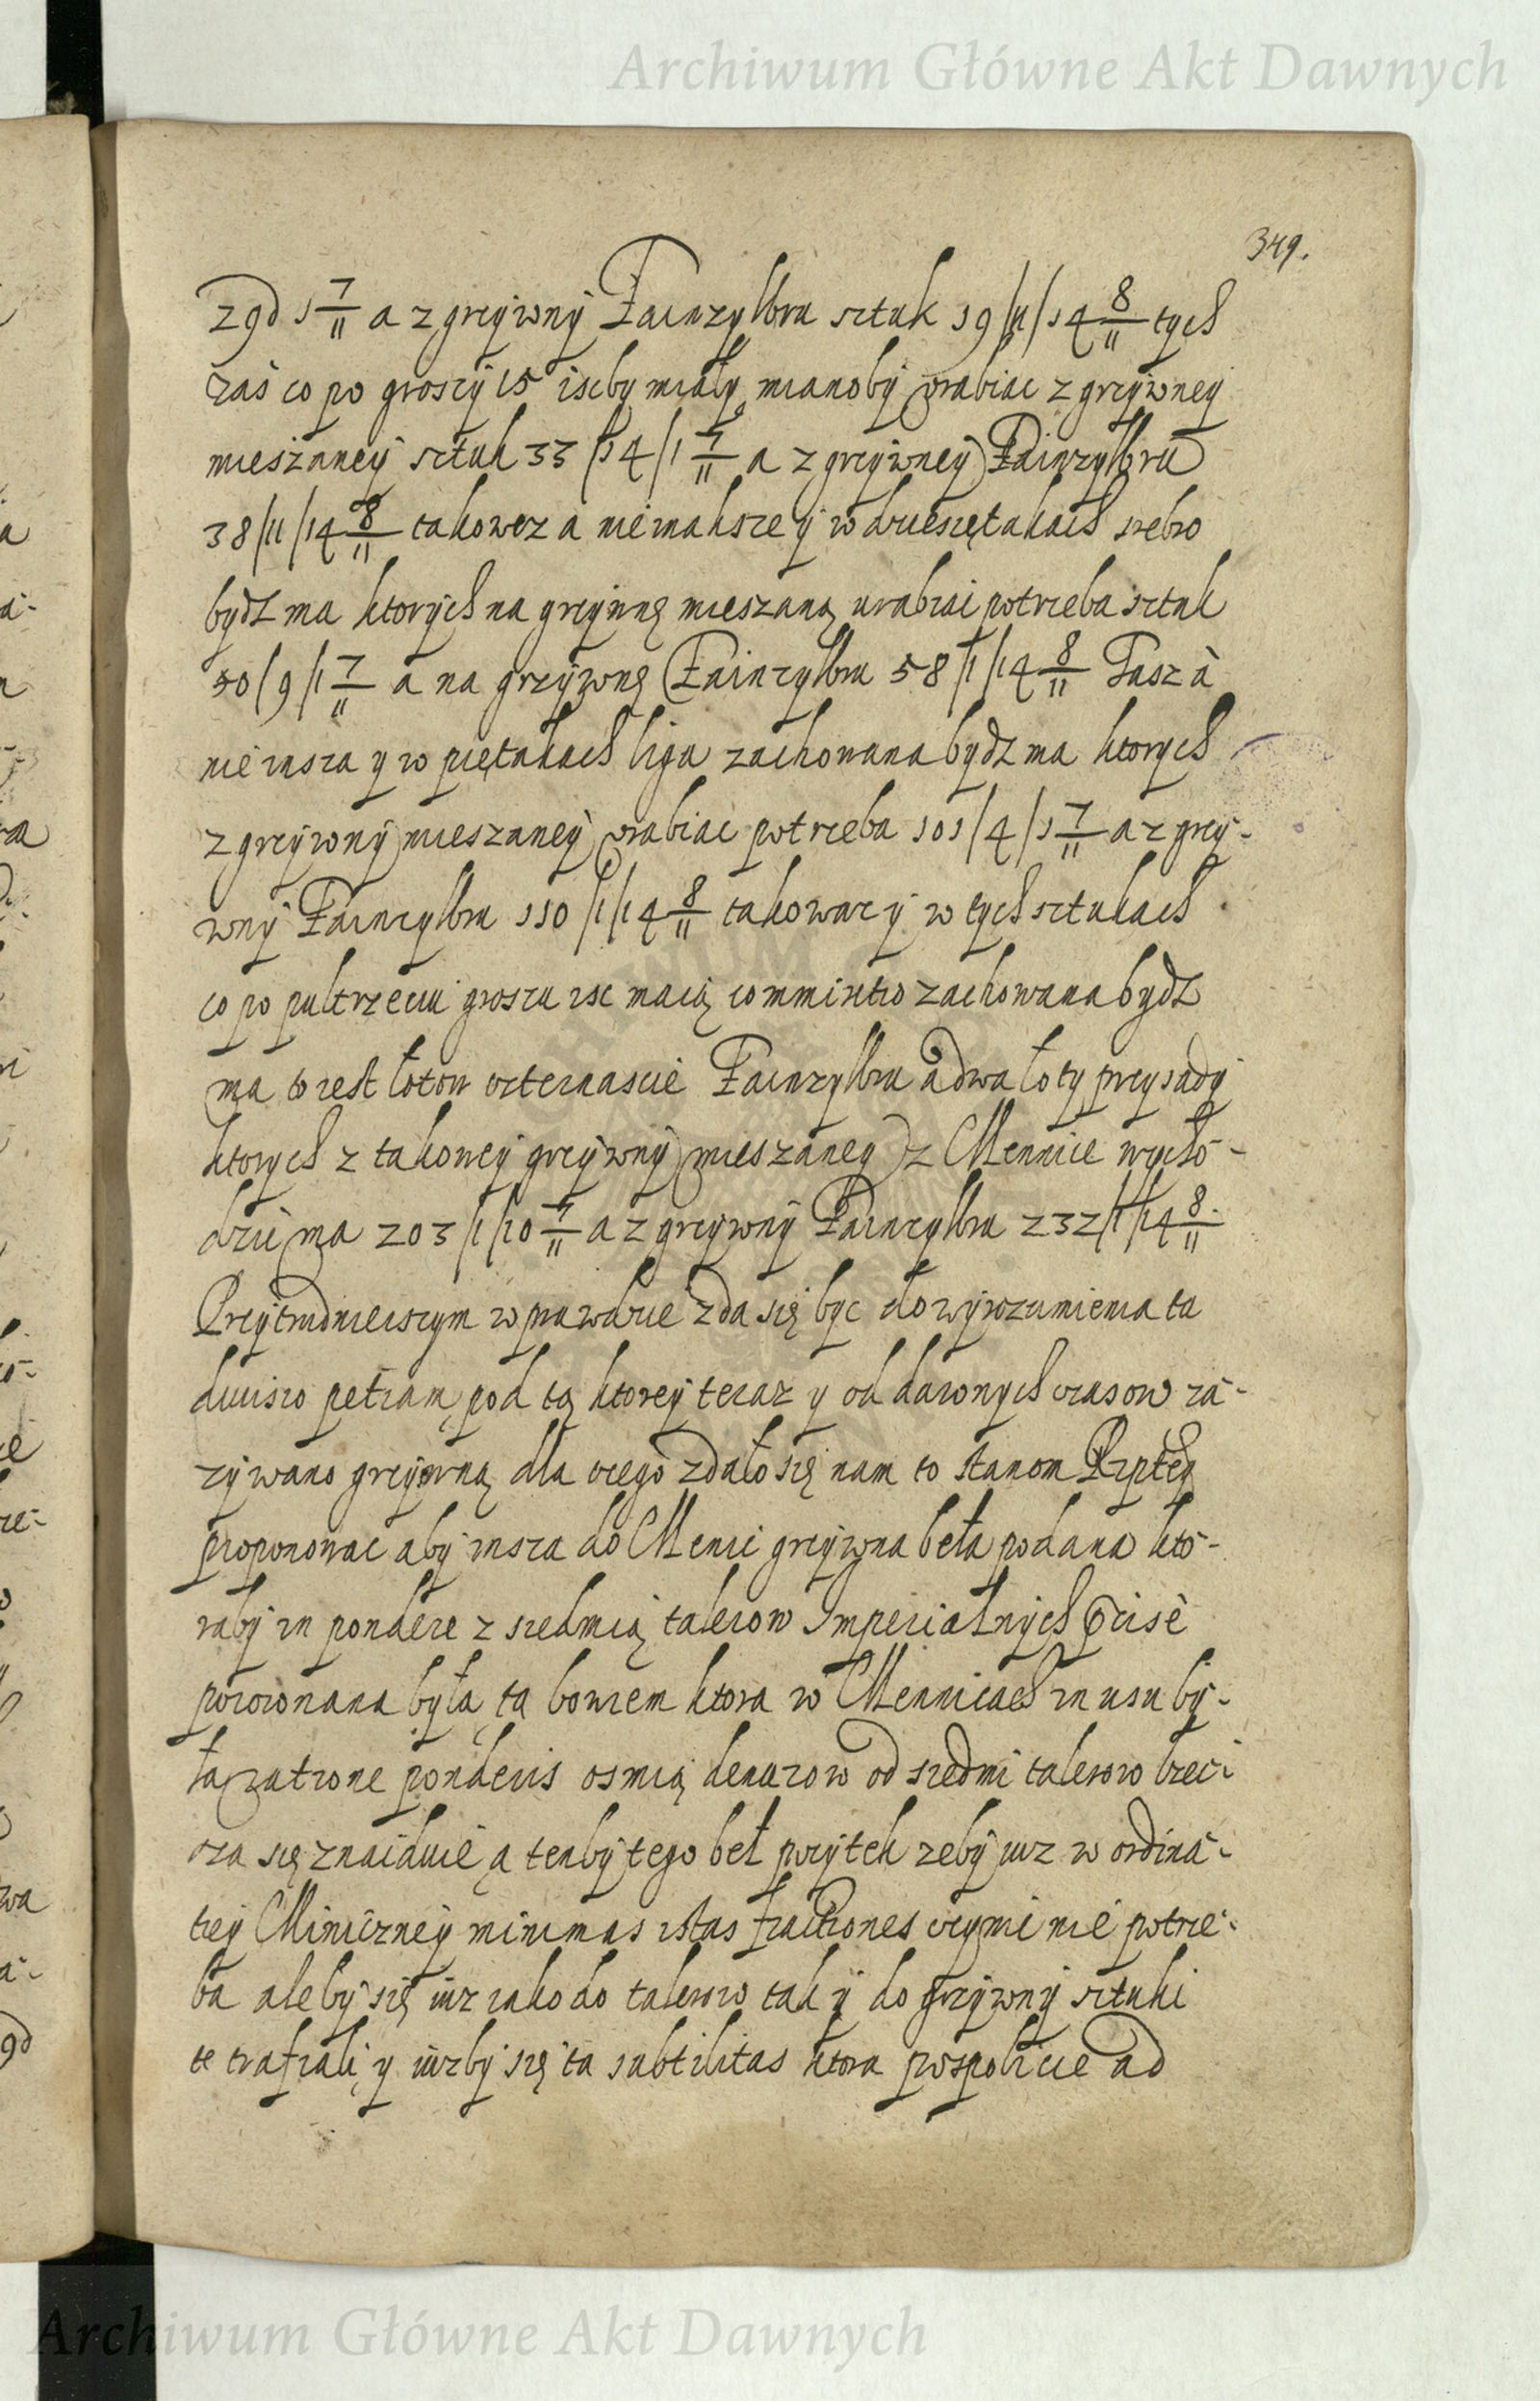 Archiwum Główne Akt Dawnych
349.
z gd 1 7/11 a z grzywny Fainzylbru sztuk 19/11/14 8/11 tych
zas co po groszy 15 iscby miały mianoby vrabiac z grzywney
mieszaney sztuk 33/14/1 7/11 a z grzywney Fainzylbru
38/11/14 8/11 takowez a nieinaksze y w dziesiętakach srebro
bydz ma ktorych na grzywnę mieszaną urabiac potrzeba sztuk
50/9/1 7/11 a na grzywnę Fainzylbru 58/1/14 8/11 Tasz à
nie insza y w piętakach liga zachowana bydz ma ktorych
z grzywny mieszaney vrabiac potrzeba 101/4/1 7/11 a z grzy-
wny Fainzylbru 110/1/14 8/11 takowaz y w tych sztukach
co po pułtrzeciu groszu isc maią commixtio zachowana bydz
ma to iest łotow czternascie Fainzylbru a dwa łoty przysady
ktorych z takowey grzywny mieszaney z Mennice wycho-
dzic ma 203/1/10 7/11 a z grzywny Fainzylbru 232/1/14 8/11
Przytrudnieiszym wprawdzie zda się byc do wyrozumienia ta
diuisio pod tą ktorey teraz y od dawnych czasow za-
zywano grzywną dla czego zdało się nam to stanom Rzptey
proponowac aby insza do Menic grzywna beła podana kto-
raby in pondere z siedmią talerow Imperialnych
porownana była ta bowiem ktora w Mennicach in usu by-
ła ratione ponderis osmią denarow od siedmi talerow lzei-
sza się znaiduie a tenby tego beł pozytek zeby iuz w ordina-
tiey Miniczney minimas istas fractiones czyni nie potrze-
ba aleby się iuz iako do talerow tak y do grzywny sztuki
te trafiali y iuzby się ta subtilitas ktora pospolicie ad
Archiwum Główne Akt Dawnych